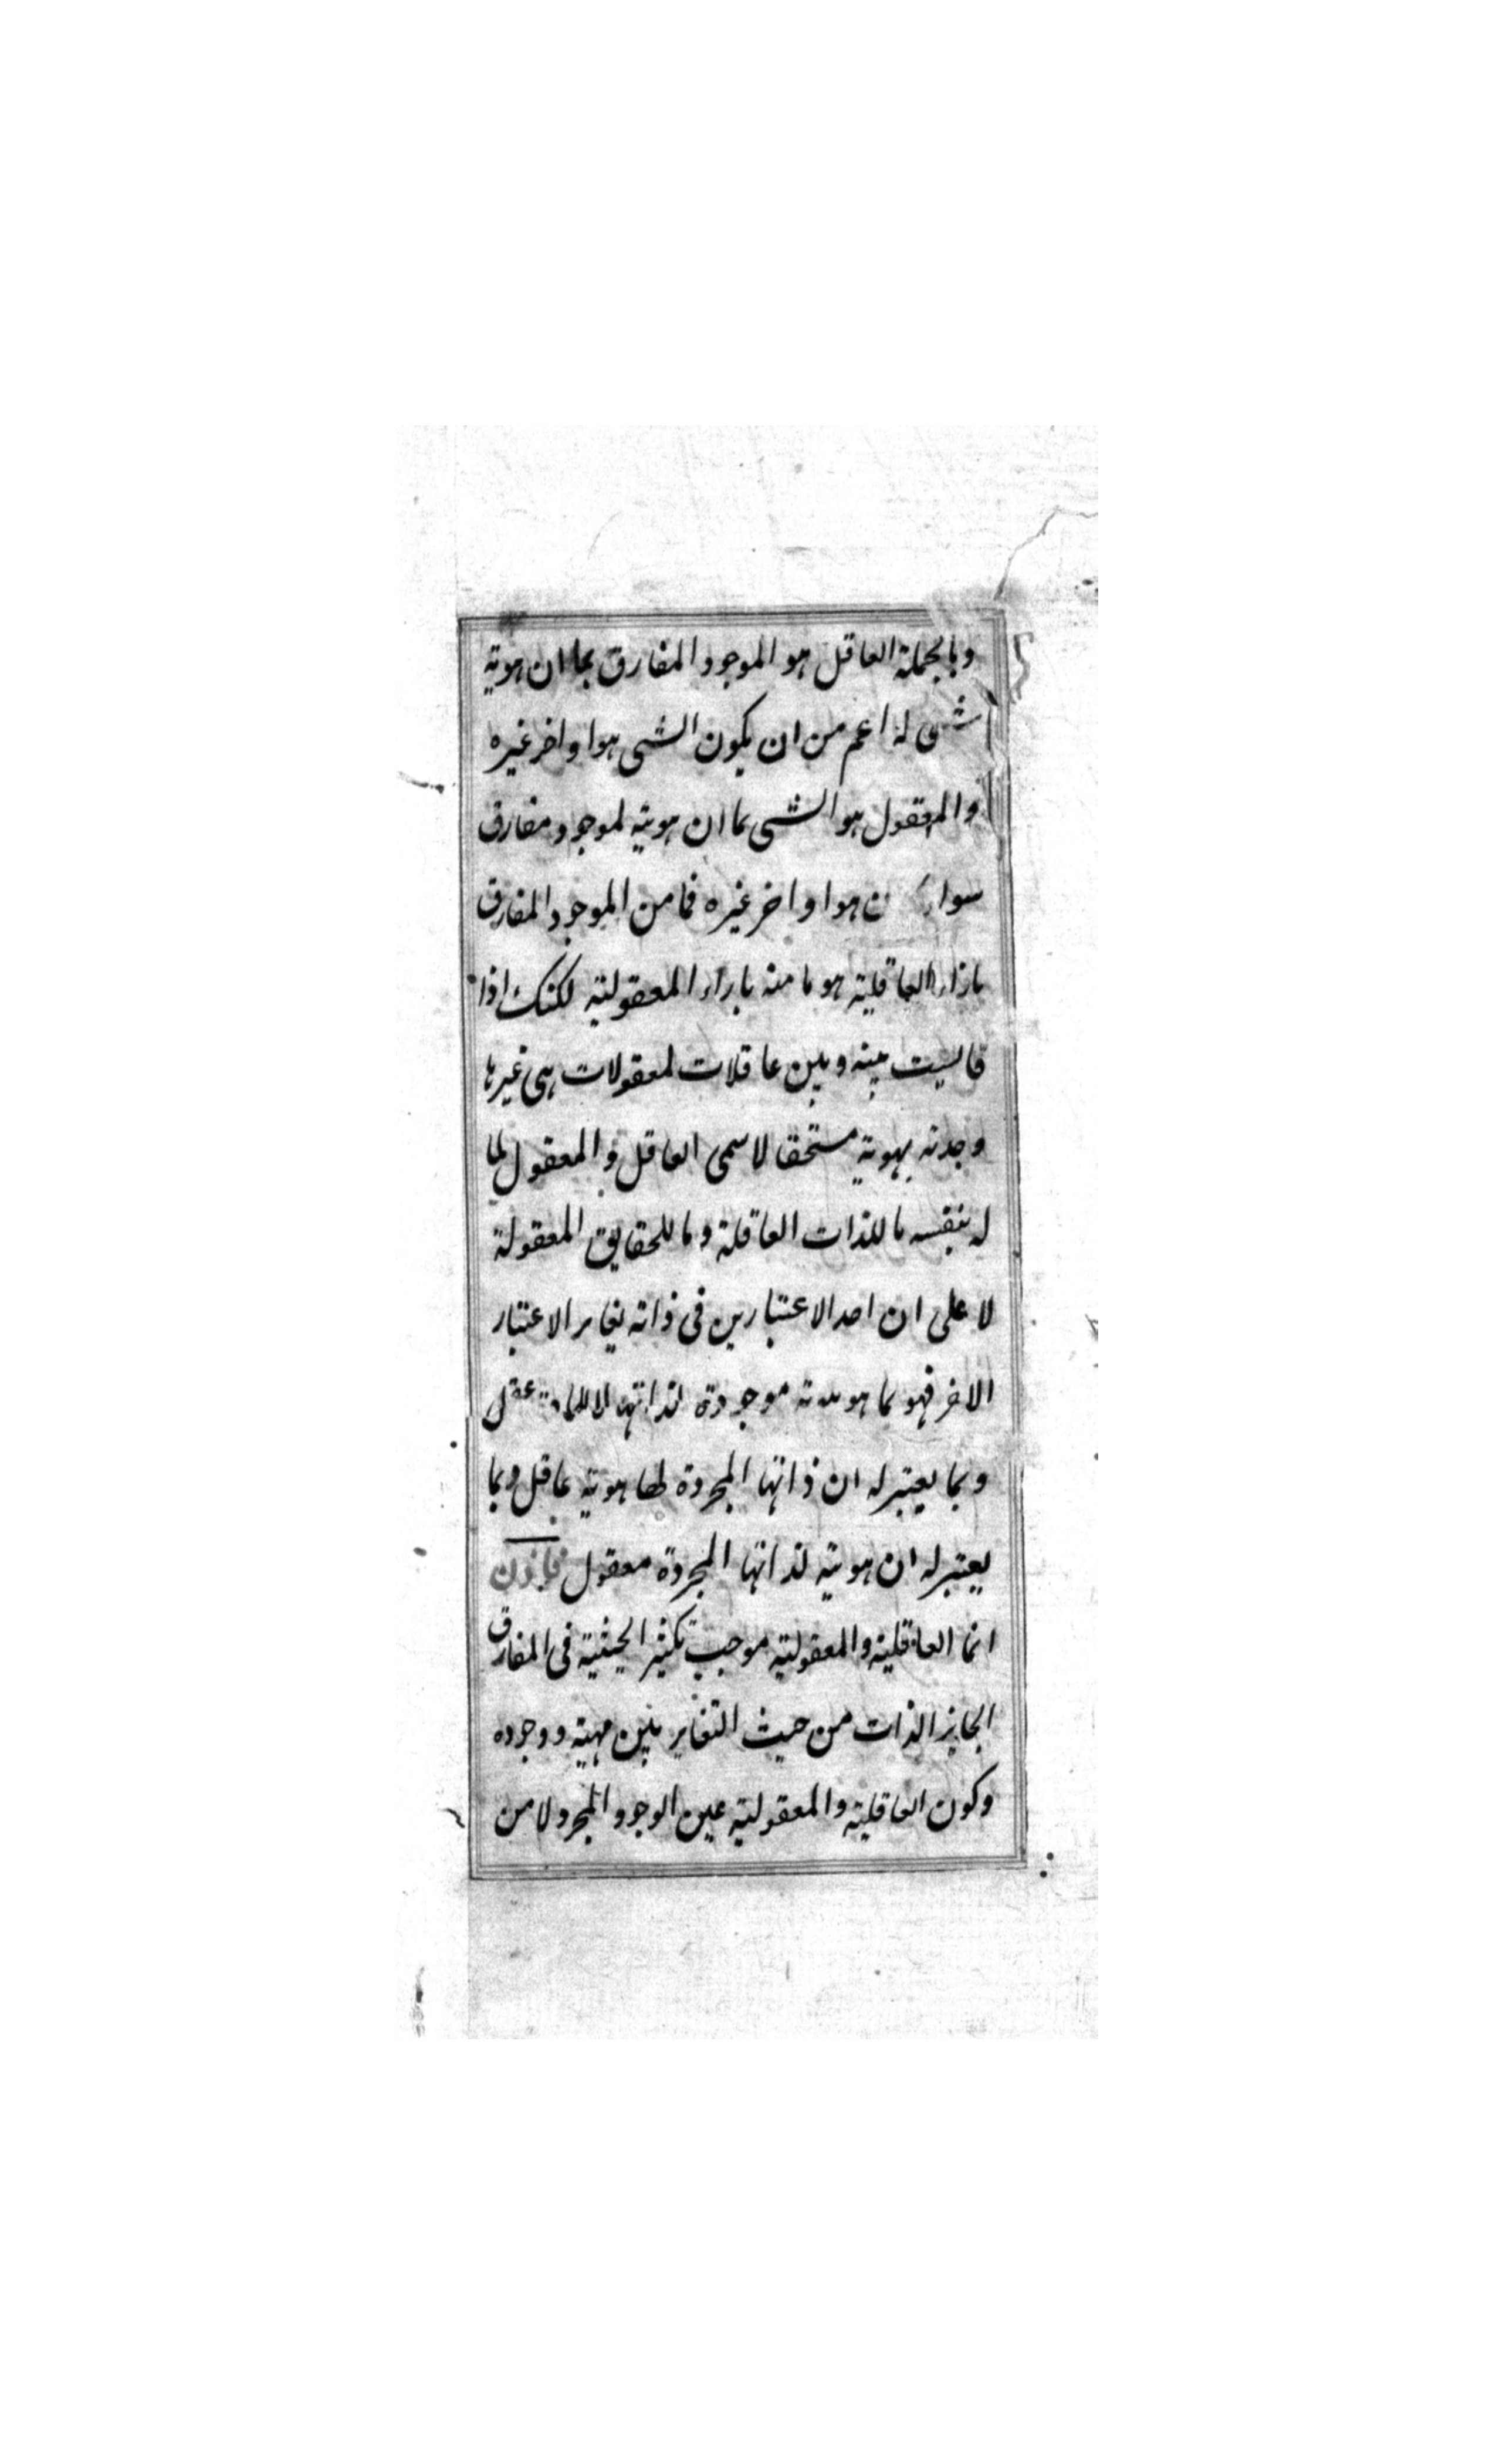 وبالجملة العاقل هو الموجود المفارق بما ان هوية
شی له اعم من ان يكون الشی هو او اخر غيره
والمعقول هو الشی بما ان هويته لموجود مفارق
سواء هو او اخر غيره فما من الموجود المفارق
بازاء العاقلية هو ما منه بازاء المعقولية لكنك اذا
قايست بينه وبين عاقلات لمعقولات هی غيرها
وجدته بهوية مستحقا لاسمی العاقل والمعقول لما
له بنفسه ما للذات العاقلة وما للحقايق المعقولة
لا علی ان احد الاعتبارين فی ذاته يغاير الاعتبار
الاخر فهو بما هويته موجودة لذاتها لا للمادة عقل
وبما يعتبر له ان ذاتها المجردة لها هوية عاقل وبما
يعتبر له ان هويته لذاتها المجردة معقول فاذن
انما العاقلية والمعقولية موجب تكثير الحيثية فی المفارق
الجايز الذات من حيث التغاير بين مهيته ووجوده
وكون العاقلية والمعقولية عين الوجود المجرد لا من